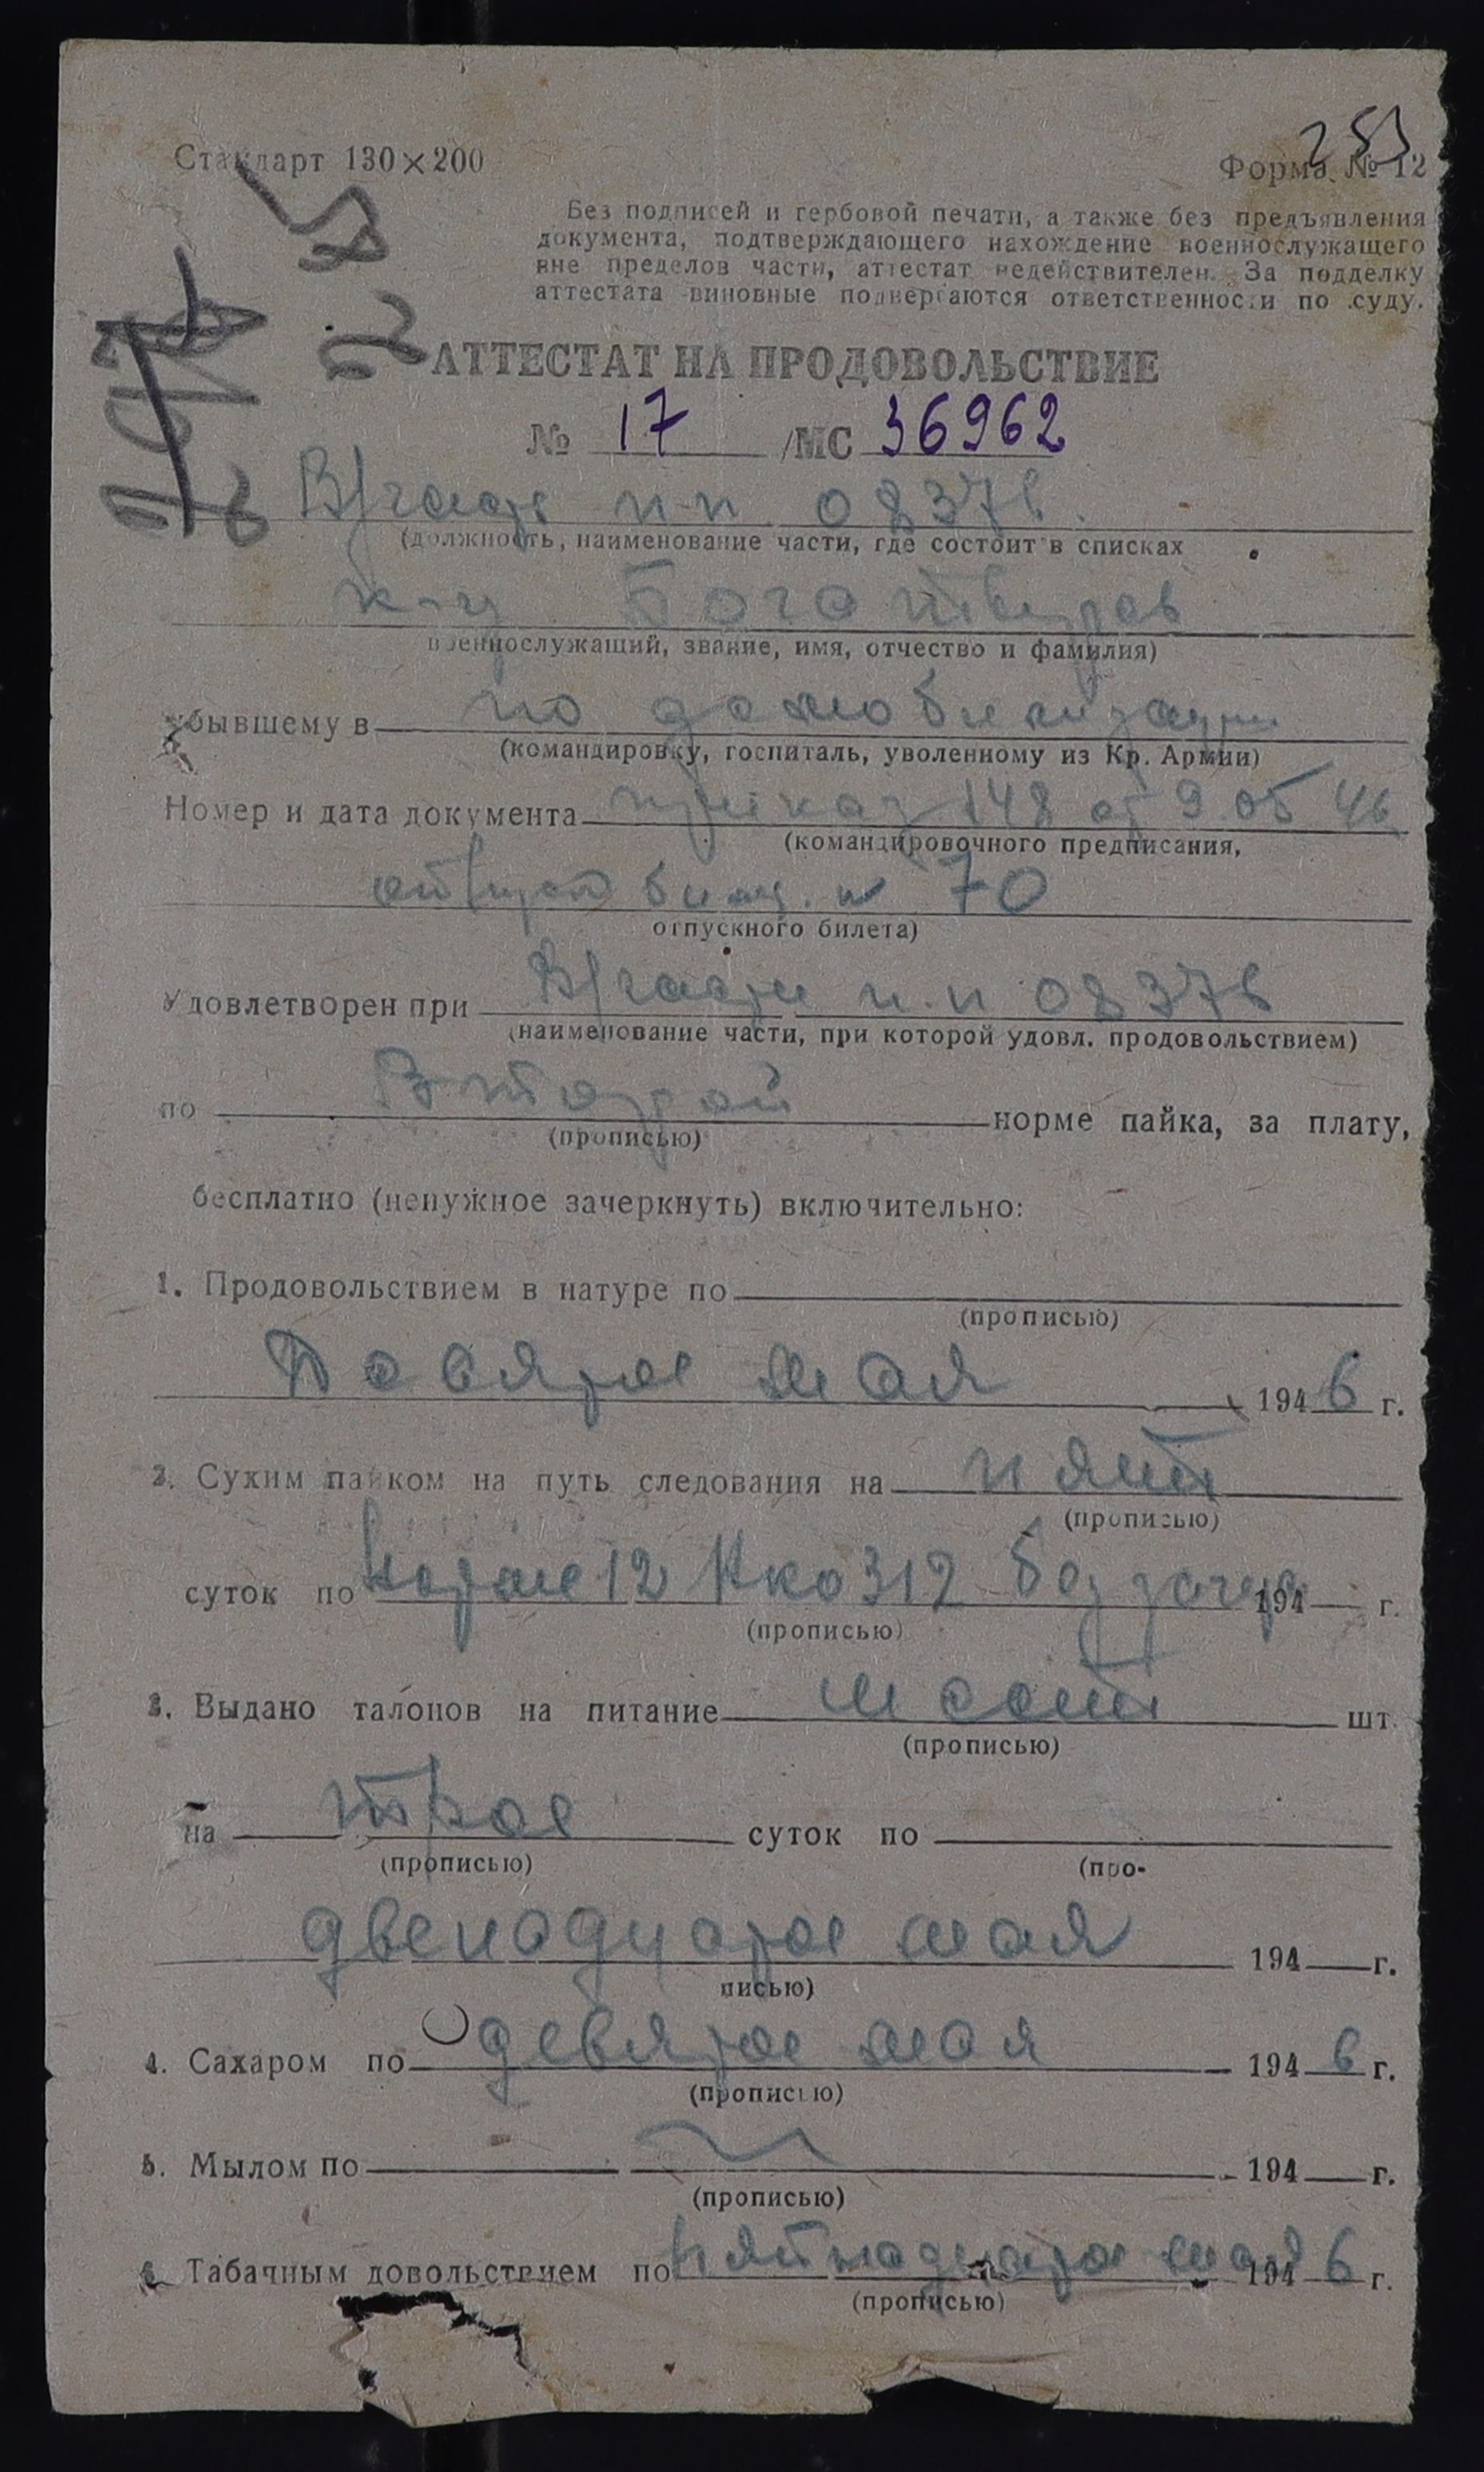 Стандарт 130×200
Форма № 12
Без подписей и гербовой печати, а также без предъявления
документа, подтверждающего нахождение военнослужащего
вне пределов части, аттестат недействителен. За подделку
аттестата виновные подвергаются ответственности по суду.
АТТЕСТАТ НА ПРОДОВОЛЬСТВИЕ
№ 17 /МС 36962
В/части п.п. 08376.
(должность, наименование части, где состоит в списках
к-ц
военнослужащий, звание, имя, отчество и фамилия)
убывшему в по демобилизации
(командировку, госпиталь, уволенному из Кр. Армии)
Номер и дата документа приказ 148 от 9.05 46
(командировочного предписания,
билет № 70
отпускного билета)
Удовлетворен при В/части п.п 08376
(наименование части, при которой удовл. продовольствием)
по Второй норме пайка, за плату,
(прописью)
бесплатно (ненужное зачеркнуть) включительно:
1. Продовольствием в натуре по
(прописью)
Девятое мая 1946 г.
2. Сухим пайком на путь следования на пять
(прописью)
суток по норме 12 НКО 312 без 194 г.
(прописью)
3. Выдано талонов на питание шесть шт.
(прописью)
на трое суток по
(прописью) (про-
двенадцатое мая 194 г.
писью)
4. Сахаром по девятое мая 1946 г.
(прописью)
5. Мылом по 194 г.
(прописью)
6. Табачным довольствием по пятнадцатое мая 1946 г.
(прописью)